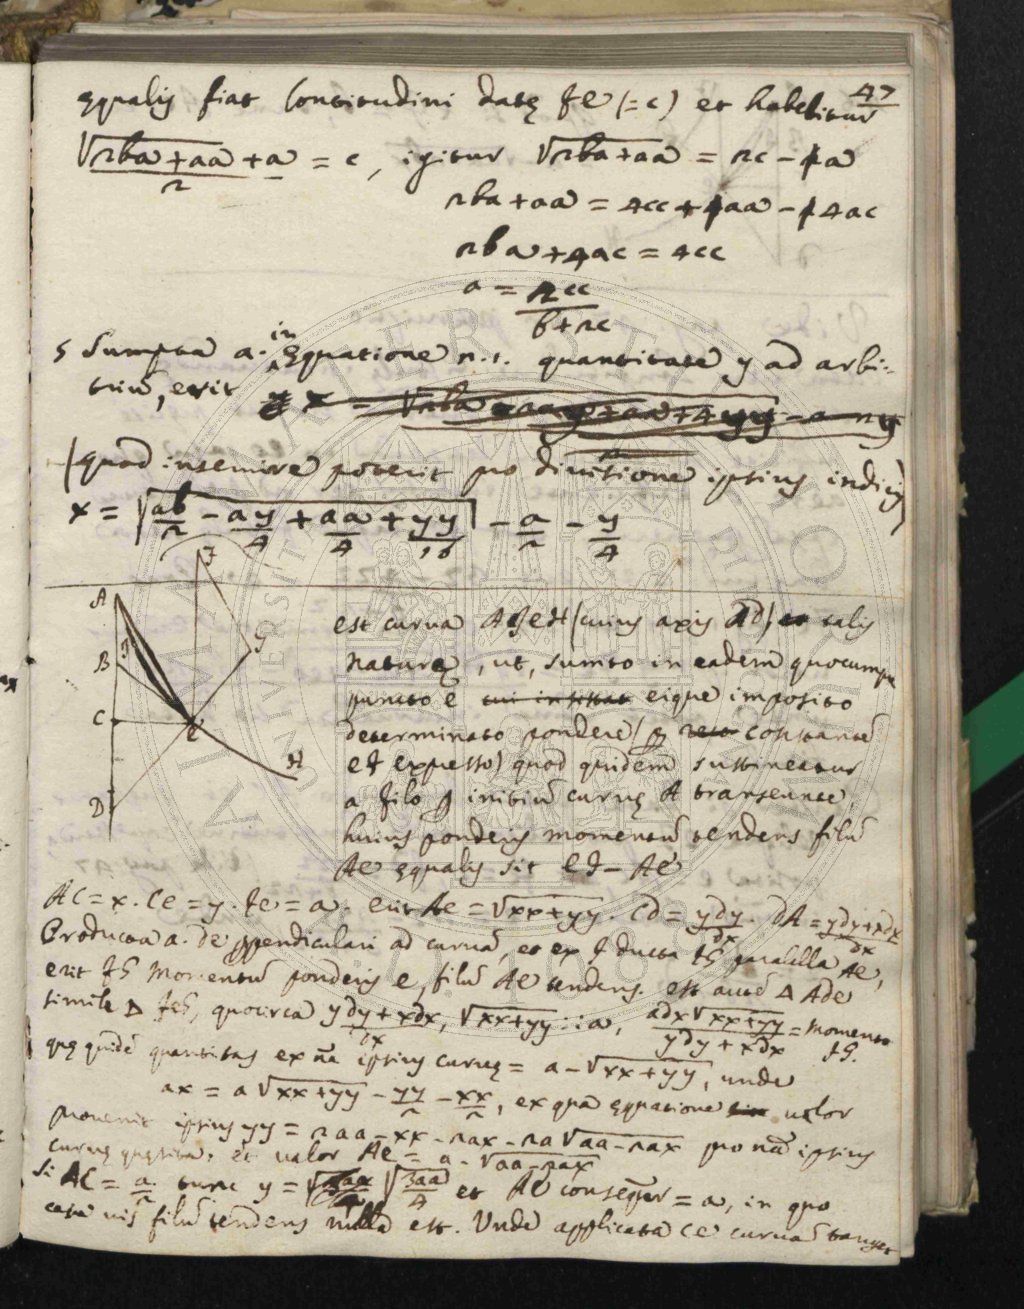 47
equalis fiat longitudini datę fe (= c) et habebitur
√2ba + aa + a / 2 = c, igitur √2ba + aa = 2c - a
2ba + aa = 4cc + aa - 4ac
2ba + 4ac = 4cc
a = 2cc / b + 2c
5 Sumpta a. in Equatione n. 1. quantitate y ad arbi-
triũ, erit
(quod inservire poterit pro divisione ipsius indicis)
x = √ab/2 - ay/4 + aa/4 + yy/16 - a/2 - y/4
A B C D e f H
est curva ABeH (cuius axis AD) talis
naturę, ut, sumto in eadem quocumque
puncto e cui insistat eique imposito
determinato pondere constante
ef expresso) quod quidem sustineatur
a filo initiũ curvę A transeunte,
huius ponderis momentũ tendens filũ
Ae equalis sit ef - Ae
AC = x. Ce = y. fe = a. erit Ae = √xx + yy. CD = ydy/dx. DA = ydy + xdx/dx
Producta a. De perpendiculari ad curvã, et ex f ducta fG parallela Ae,
erit fG momentũ ponderis e, filũ Ae tendens. est autẽ Δ ADe
simile Δ feG, quocirca ydy + xdx/dx, √xx + yy :: a, adx√xx + yy / ydy + xdx = momento fG.
quę quidẽ quantitas ex nã ipsius curvę = a - √xx + yy, unde
ax = a√xx + yy - yy/2 - xx/2, ex qua equatione valor
provenit ipsius yy = 2aa - xx - 2ax - 2a√aa - 2ax pro nã ipsius
curvę quęsita. et valor Ae = a - √aa - 2ax
Si AC = a/2 tunc y = √3aa/4 et Ae conseqũr = a, in quo
casu vis filũ tendens nulla est. Unde applicata Ce curvã tanget